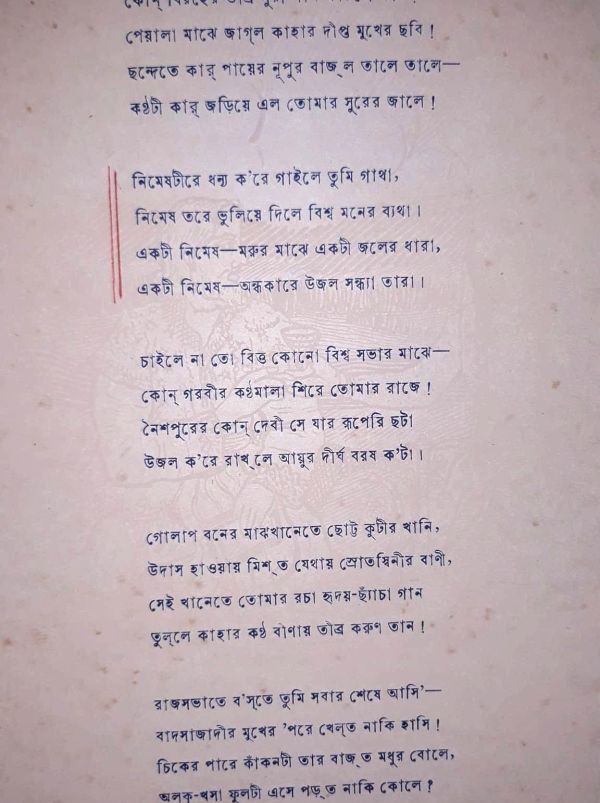 পেয়ালা মাঝে জাগ্‌ল কাহার দীপ্ত মুখের ছবি !
ছন্দেতে কার্ পায়ের নূপুর বাজ্‌ল তালে তালে—
কণ্ঠটী কার্ জড়িয়ে এল তোমার সুরের জালে !
নিমেষটীরে ধন্য ক'রে গাইলে তুমি গাথা,
নিমেষ তরে ভুলিয়ে দিলে বিশ্ব মনের ব্যথা ।
একটী নিমেষ—মরুর মাঝে একটী জলের ধারা,
একটী নিমেষ—অন্ধকারে উজল সন্ধ্যা তারা ।
চাইলে না তো বিত্ত কোনো বিশ্ব সভার মাঝে—
কোন্ গরবীর কণ্ঠমালা শিরে তোমার রাজে !
নৈশপুরের কোন্ দেবী সে যার রূপেরি ছটা
উজল ক'রে রাখ্‌লে আয়ুর দীর্ঘ বরষ ক'টা ।
গোলাপ বনের মাঝখানেতে ছোট্ট কুটীর খানি,
উদাস হাওয়ায় মিশ্‌ত যেথায় স্রোতস্বিনীর বাণী,
সেই খানেতে তোমার রচা হৃদয়-ছ্যাঁচা গান
তুল্‌লে কাহার কণ্ঠ বীণায় তীব্র করুণ তান !
রাজসভাতে ব'স্‌তে তুমি সবার শেষে আসি'—
বাদসাজাদীর মুখের 'পরে খেল্‌ত নাকি হাসি !
চিকের পারে কাঁকনটী তার বাজ্‌ত মধুর বোলে,
অলক-খসা ফুলটী এসে পড়্‌ত নাকি কোলে ?